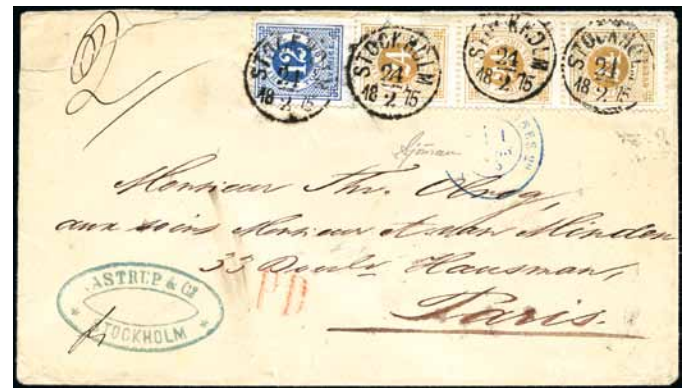 12
24
STOCKHOLM
24
18 2 75
STOCKHOLM
24
18 2 75
STOCKHOLM
24
18 2 75
STOCKHOLM
24
18 2 75
Monsieur Thr.
aux soins Monsieur A. van Minden
33 Boulv Hausman,
Paris.
PD
ASTRUP & C
STOCKHOLM